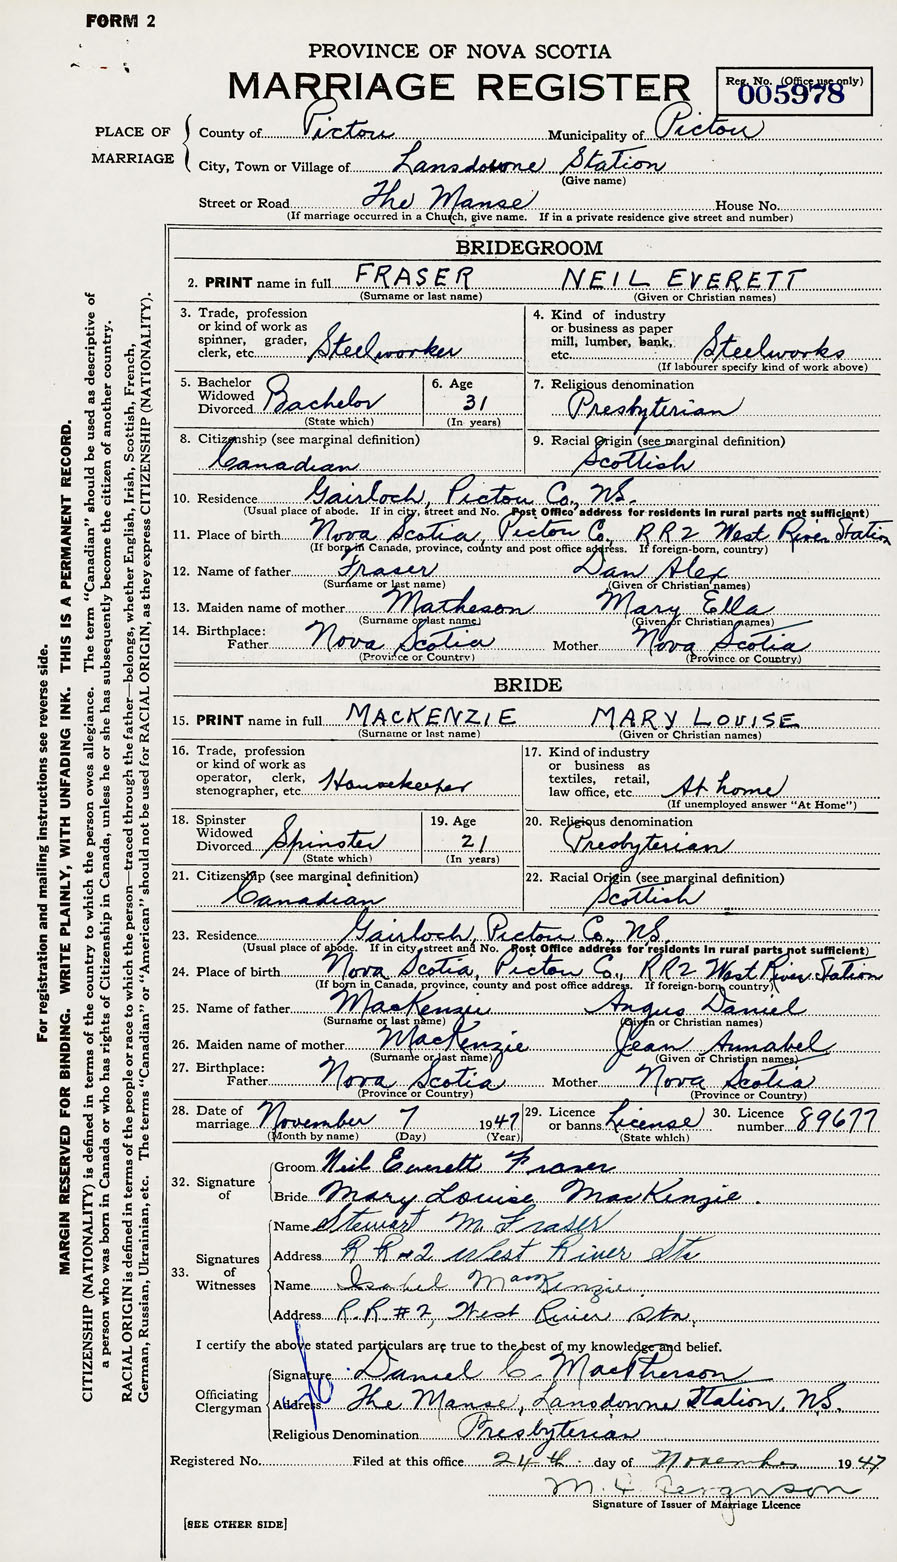 FORM 2
PROVINCE OF NOVA SCOTIA
MARRIAGE REGISTER
Reg. No. (Office use only)
005978
PLACE OF MARRIAGE
County of Pictou Municipality of Pictou
City, Town or Village of Lansdowne Station
(Give name)
Street or Road The Manse House No.
(If marriage occurred in a Church, give name. If in a private residence give street and number)
BRIDEGROOM
2. PRINT name in full FRASER NEIL EVERETT
(Surname or last name) (Given or Christian names)
3. Trade, profession or kind of work as spinner, grader, clerk, etc. Steelworker
4. Kind of industry or business as paper mill, lumber, bank, etc. Steelworks
(If labourer specify kind of work above)
5. Bachelor Widowed Divorced Bachelor
(State which)
6. Age 31
(In years)
7. Religious denomination
Presbyterian
8. Citizenship (see marginal definition)
Canadian
9. Racial Origin (see marginal definition)
Scottish
10. Residence Gairloch, Pictou Co., N.S.
(Usual place of abode. If in city, street and No. Post Office address for residents in rural parts not sufficient)
11. Place of birth Nova Scotia, Pictou Co., RR2 West River Station
(If born in Canada, province, county and post office address. If foreign-born, country)
12. Name of father Fraser Dan Alex
(Surname or last name) (Given or Christian names)
13. Maiden name of mother Matheson Mary Ella
(Surname or last name) (Given or Christian names)
14. Birthplace: Father Nova Scotia Mother Nova Scotia
(Province or Country) (Province or Country)
BRIDE
15. PRINT name in full MACKENZIE MARY LOUISE
(Surname or last name) (Given or Christian names)
16. Trade, profession or kind of work as operator, clerk, stenographer, etc. Housekeeper
17. Kind of industry or business as textiles, retail, law office, etc. At home
(If unemployed answer "At Home")
18. Spinster Widowed Divorced Spinster
(State which)
19. Age 21
(In years)
20. Religious denomination
Presbyterian
21. Citizenship (see marginal definition)
Canadian
22. Racial Origin (see marginal definition)
Scottish
23. Residence Gairloch, Pictou Co., N.S.
(Usual place of abode. If in city street and No. Post Office address for residents in rural parts not sufficient)
24. Place of birth Nova Scotia, Pictou Co., RR2 West River Station
(If born in Canada, province, county and post office address. If foreign-born, country)
25. Name of father MacKenzie Angus Daniel
(Surname or last name) (Given or Christian names)
26. Maiden name of mother MacKenzie Jean Annabel
(Surname or last name) (Given or Christian names)
27. Birthplace: Father Nova Scotia Mother Nova Scotia
(Province or Country) (Province or Country)
28. Date of marriage November 7 1947
(Month by name) (Day) (Year)
29. Licence or banns License
(State which)
30. Licence number 89677
32. Signature of
Groom Neil Everett Fraser
Bride Mary Louise MacKenzie.
33. Signatures of Witnesses
Name Stewart M. Fraser
Address R R #2 West River Sta
Name Isabel MacKenzie.
Address R.R. #2, West River Sta.
I certify the above stated particulars are true to the best of my knowledge and belief.
Officiating Clergyman
Signature Daniel C. MacPherson
Address The Manse, Lansdowne Station, N.S.
Religious Denomination Presbyterian
Registered No. Filed at this office 24th day of November 1947
M. D. Ferguson
Signature of Issuer of Marriage Licence
[SEE OTHER SIDE]
For registration and mailing instructions see reverse side.
MARGIN RESERVED FOR BINDING. WRITE PLAINLY, WITH UNFADING INK. THIS IS A PERMANENT RECORD.
CITIZENSHIP (NATIONALITY) is defined in terms of the country to which the person owes allegiance. The term "Canadian" should be used as descriptive of
a person who was born in Canada or who has rights of Citizenship in Canada, unless he or she has subsequently become the citizen of another country.
RACIAL ORIGIN is defined in terms of the people or race to which the person—traced through the father—belongs, whether English, Irish, Scottish, French,
German, Russian, Ukrainian, etc. The terms "Canadian" or "American" should not be used for RACIAL ORIGIN, as they express CITIZENSHIP (NATIONALITY).